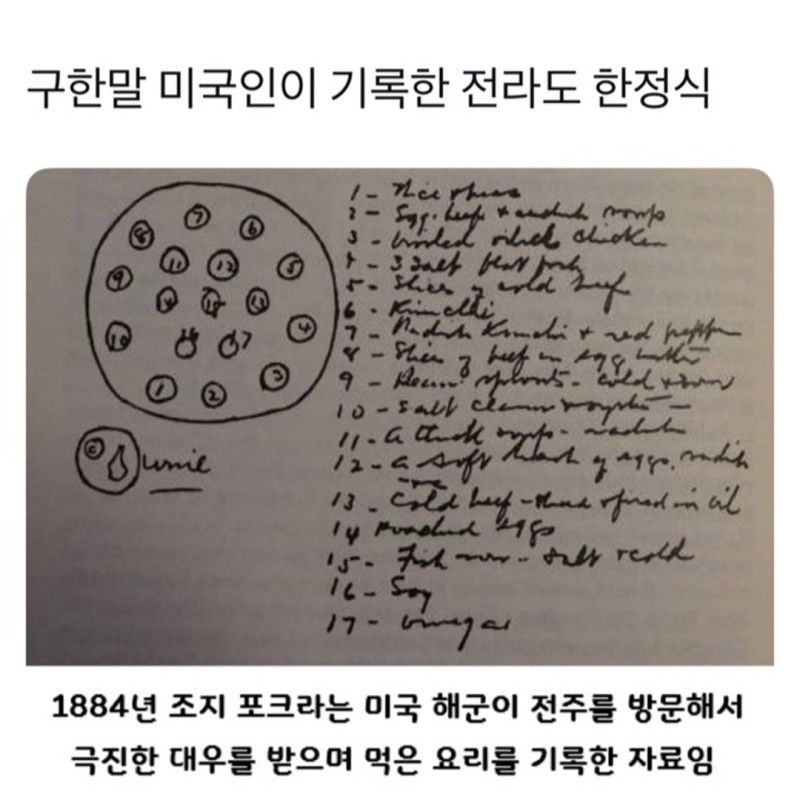 구한말 미국인이 기록한 전라도 한정식
1 - Rice & beans
2 - Egg. beef & radish soup
3 - broiled chicken
4 - 3 salt pork
5 - Slices of cold beef
6 - Kimchi
7 - Radish Kimchi & red pepper
8 - Slices of beef in egg batter
9 - Bean sprouts - cold & sour
10 - salt clams & oysters -
11 - a thick soup - radish
12 - a soft hash of eggs. radish
13 - Cold beef - fried in oil
14 Poached Eggs
15 - Fish - salt & cold
16 - Soy
17 - vinegar
8 7 6
9 11 12 5
14 15 13
10 16 17 4
1 2 3
wine
1884년 조지 포크라는 미국 해군이 전주를 방문해서
극진한 대우를 받으며 먹은 요리를 기록한 자료임